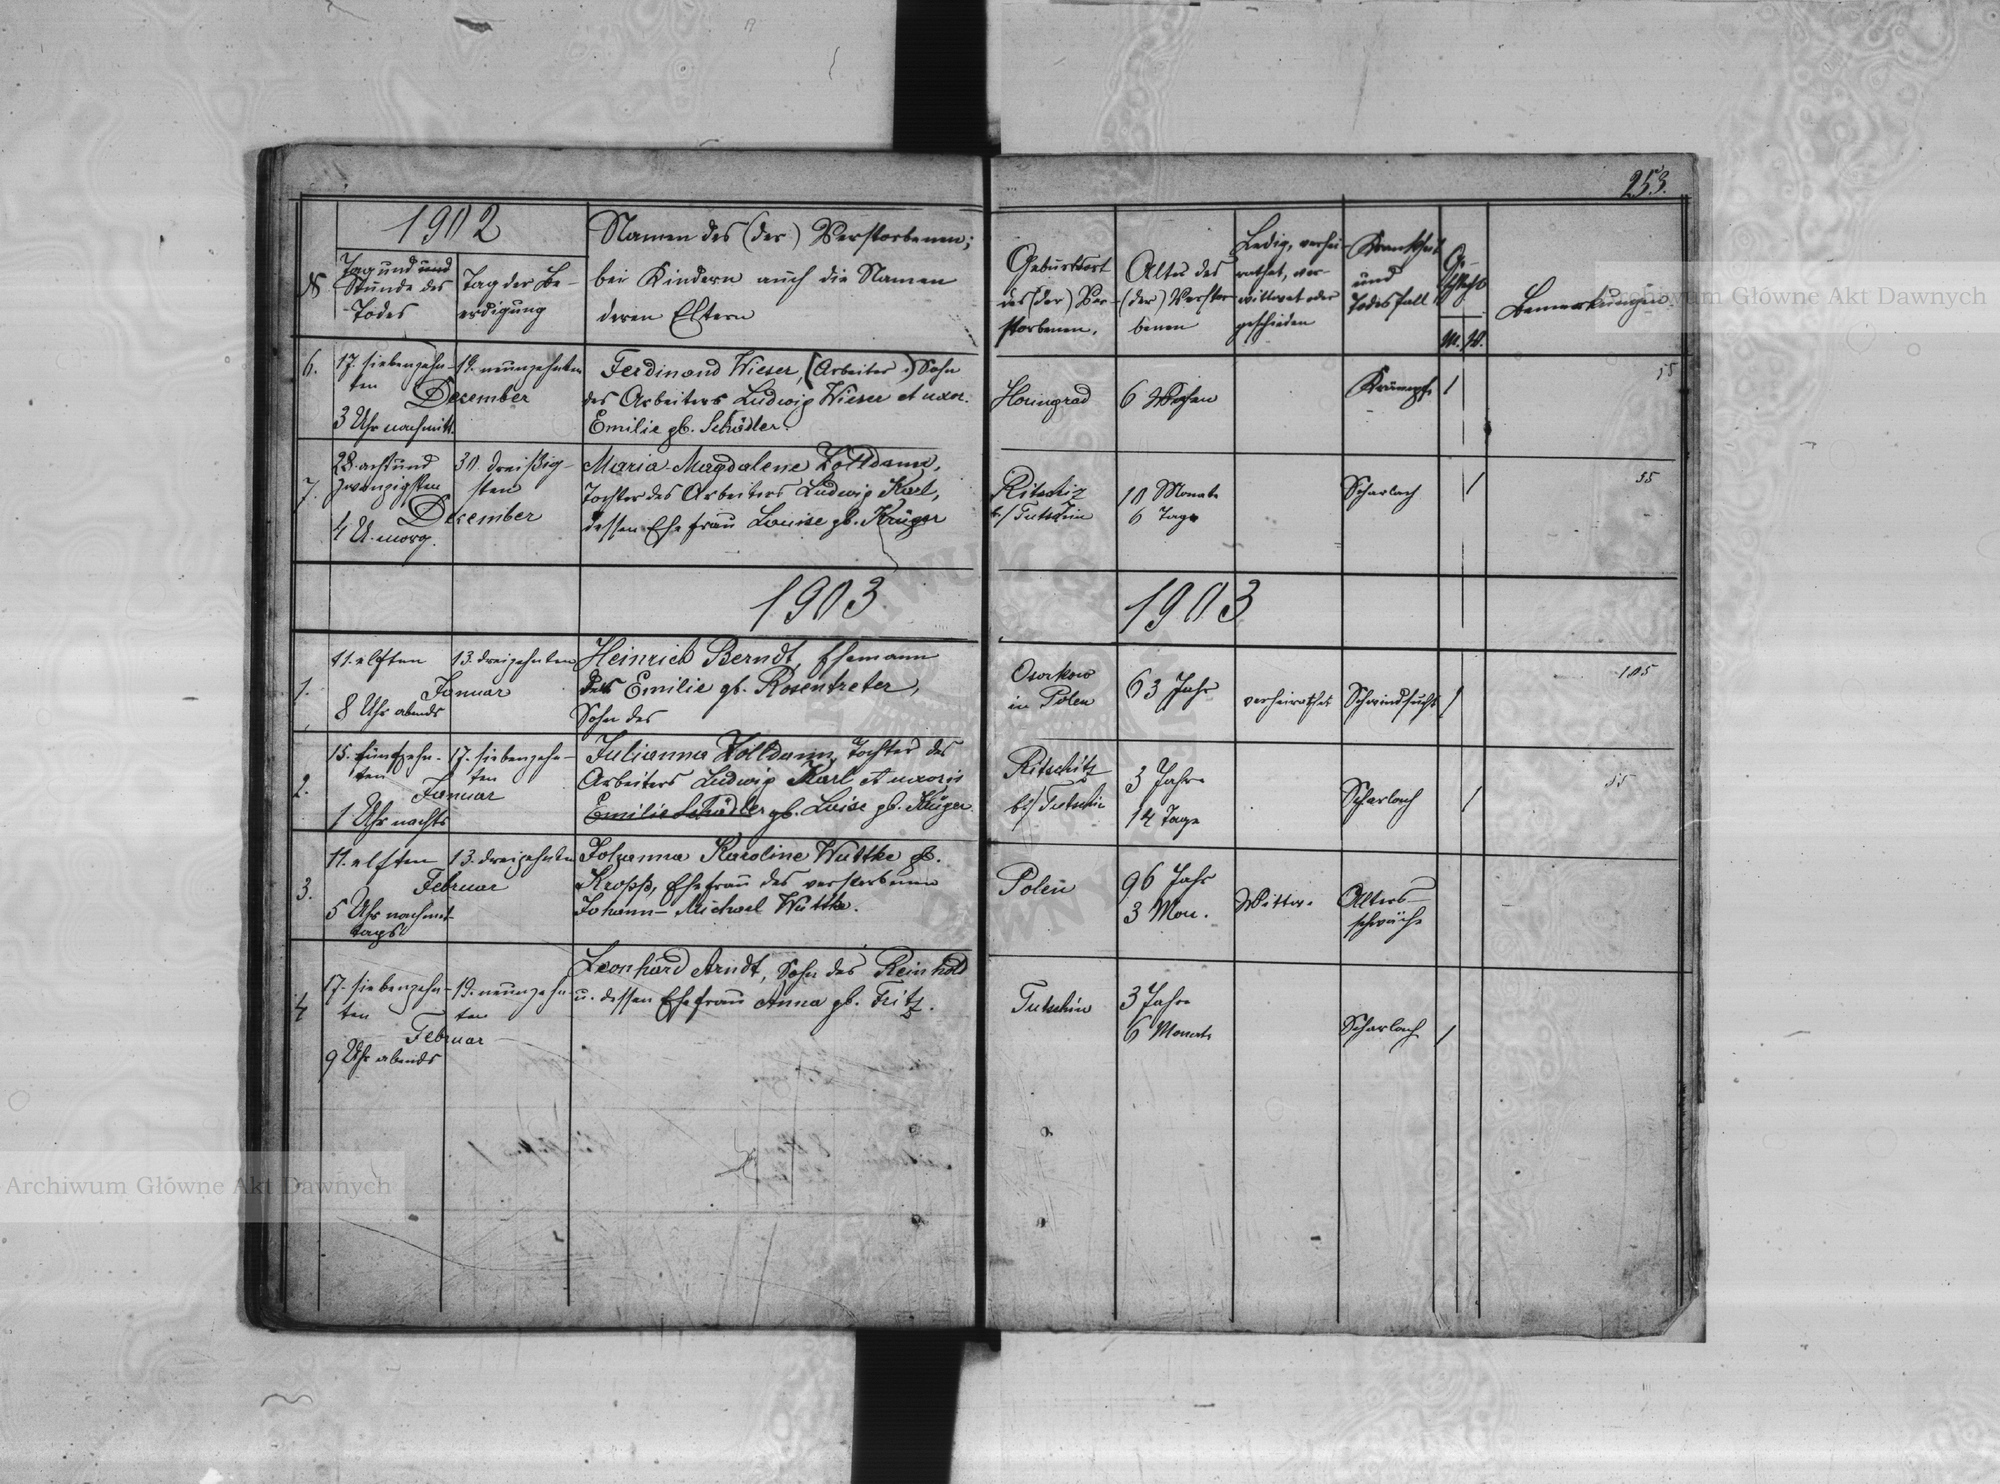 253.
1902
Namen des (der) Verstorbenen;
bei Kindern auch die Namen
deren Eltern
№
Tag und und
Stunde des
Todes
Tag der Be-
erdigung
Geburtsort
des (der) Ver-
storbenen.
Alter des
(der) Verstor-
benen
Ledig, verhei-
rathet, ver-
wittwet oder
geschieden
Krankheit
und
Todesfall
Ge-
schlecht
M. W.
Bemerkungen.
6.
17. siebenzehn-
ten
Dezember
3 Uhr nachmitt.
19. neunzehnten
Ferdinand Wieser, (Arbeiter) Sohn
des Arbeiters Ludwig Wieser et uxor.
Emilie gb. Schädler.
Horingrad
6 Wochen
Krämpfe
1
55
7.
28. acht und
zwanzigsten
Dezember
4 U. morg.
30. dreißig-
sten
Maria Magdalene Zolldann,
Tochter des Arbeiters Ludwig Karl,
dessen Ehefrau Louise gb. Krüger
Ritschiz
b/ Tutschin
10 Monate
6 Tage
Scharlach
1
55
1903.
1903
1.
11. elften
Januar
8 Uhr abends
13. dreizehnten
Heinrich Berndt, Ehemann
der Emilie gb. Rosentreter,
Sohn des
Osorkow
in Polen
63 Jahr
verheirathet
Schwindsucht
1
105
2.
15. fünfzehn-
ten
Januar
1 Uhr nachts
17. siebenzehn-
ten
Julianna Zolldann, Tochter des
Arbeiters Ludwig Karl et uxoris
Emilie Schädler gb. Luise gb. Krüger.
Ritschitz
b/ Tutschin
3 Jahre
14 Tage
Scharlach
1
55
3.
11. elften
Februar
5 Uhr nachmit-
tags
13. dreizehnten
Johanna Karoline Wuttke gb.
Kropp, Ehefrau des verstorbenen
Johann-Michael Wuttke.
Polen
96 Jahr
3 Mon.
Wittwe
Alters-
schwäche
4
17. siebenzehn-
ten
Februar
9 Uhr abends
19. neunzehn-
ten
Leonhard Arndt, Sohn des Reinhold
u. dessen Ehefrau Anna gb. Fritz.
Tutschin
3 Jahre
6 Monate
Scharlach
1
Archiwum Główne Akt Dawnych
Archiwum Główne Akt Dawnych